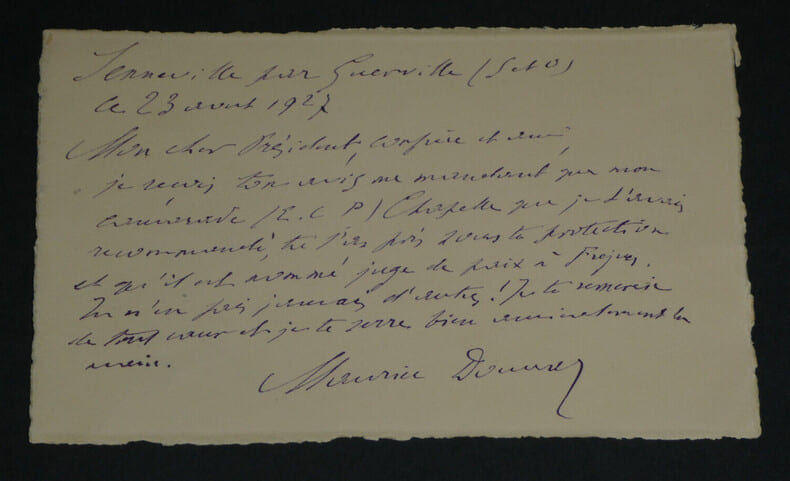 Senneville par Guerville (S et O)
ce 23 avout 1927
Mon cher Président, confrère et ami,
je reçois ton avis me mandant que mon
camarade (E. C P) Chapelle que je t'avais
recommandé, tu l'as pris sous ta protection
et qu'il est nommé juge de paix à Frejus.
Tu n'en fais jamais d'autres! Je te remercie
de tout cœur et je te serre bien amicalement la
main.
Maurice Donnay